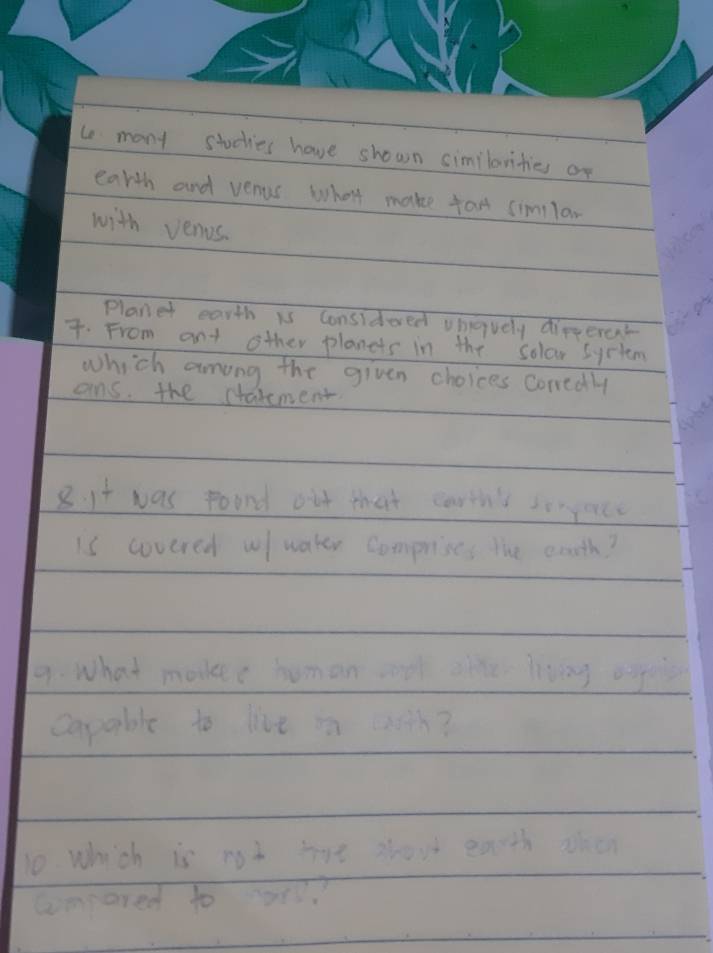 6. many studies have shown similarities of
earth and venus. What make eart similar
with venus.
Planet earth is considered uniquely different
7. From ant other planets in the solar system
which among the given choices correctly
ans. the statement.
8. it was Found out that earth's surface
is covered w/ water comprises the earth?
9. What makes human and other living
capable to live on earth?
10. Which is not true about earth when
compared to mars?